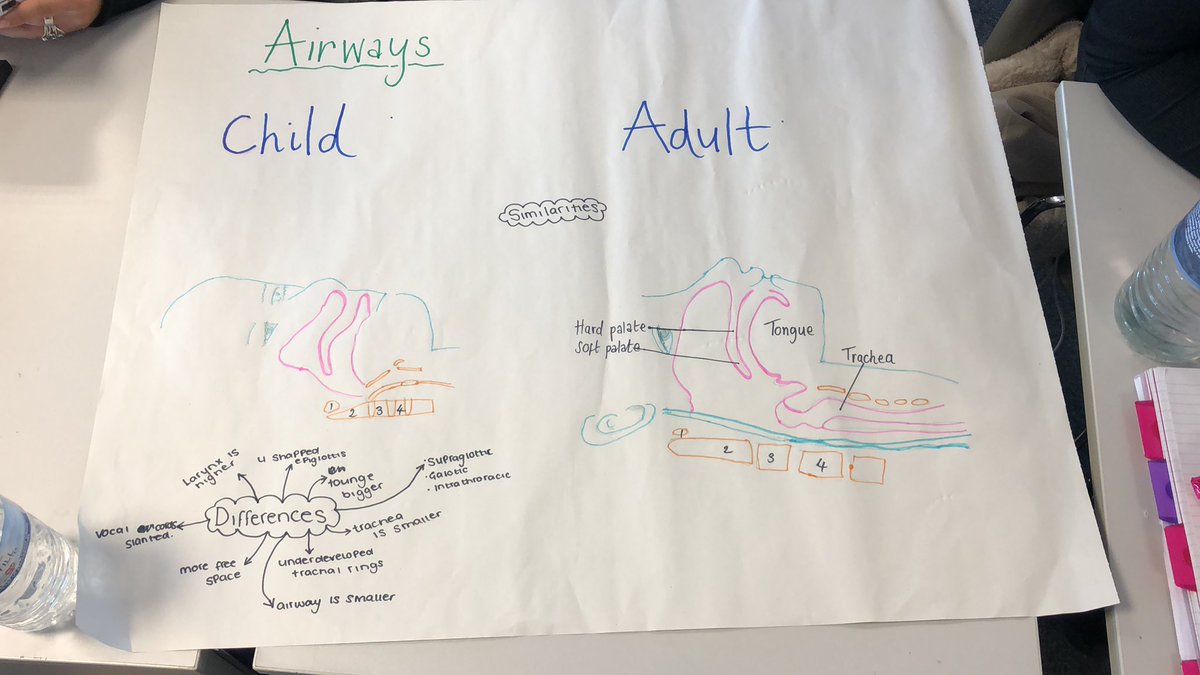 Airways
Child
Adult
Similarities
Hard palate
Soft palate
Tongue
Trachea
1
2
3
4
1
2
3
4
Differences
Larynx is
higher
U shapped
epiglottis
tounge
bigger
• Supraglottic
• Intrathroracic
trachea
is smaller
underdeveloped
trachal rings
airway is smaller
more free
space
vocal cords
slanted.